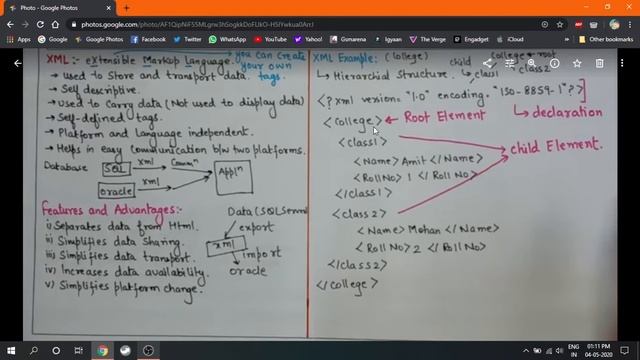 Photo - Google Photos
photos.google.com/photo/AF1QipNiF55MLgnw3hGogkkDoFlJkO-H5IYwkua0ArrJ
Apps
YouTube
Facebook
Google
GitHub
Gumroad
Igyaan
Twitter
The Verge
Engadget
iCloud
Other bookmarks
XML :- eXtensible Markup Language.
you can create
your own
tags.
→ Used to Store and transport data.
→ Self descriptive.
→ Used to Carry data (Not used to display data)
→ Self-defined tags.
→ Platform and Language independent.
→ Helps in easy communication b/w two platforms.
Database
SQL
xml
Commn
Appln
oracle
xml
Features and Advantages:-
i) Separates data from Html.
ii) Simplifies data Sharing.
iii) Simplifies data transport.
iv) Increases data availability.
v) Simplifies platform change.
Data(SQLServer)
export
xml
import
oracle
XML Example:
(College)
College → root
child
class1
class2
↳ Hierarchical Structure.
<?xml version= "1.0" encoding= "ISO-8859-1"?>
↳ declaration
<College> ← Root Element
<class1>
child Element.
<Name> Amit </Name>
<RollNo> 1 </RollNo>
</class1>
<class2>
<Name> Mohan </Name>
<RollNo> 2 </RollNo>
</class2>
</College>
ENG
IN
01:11 PM
04-05-2020